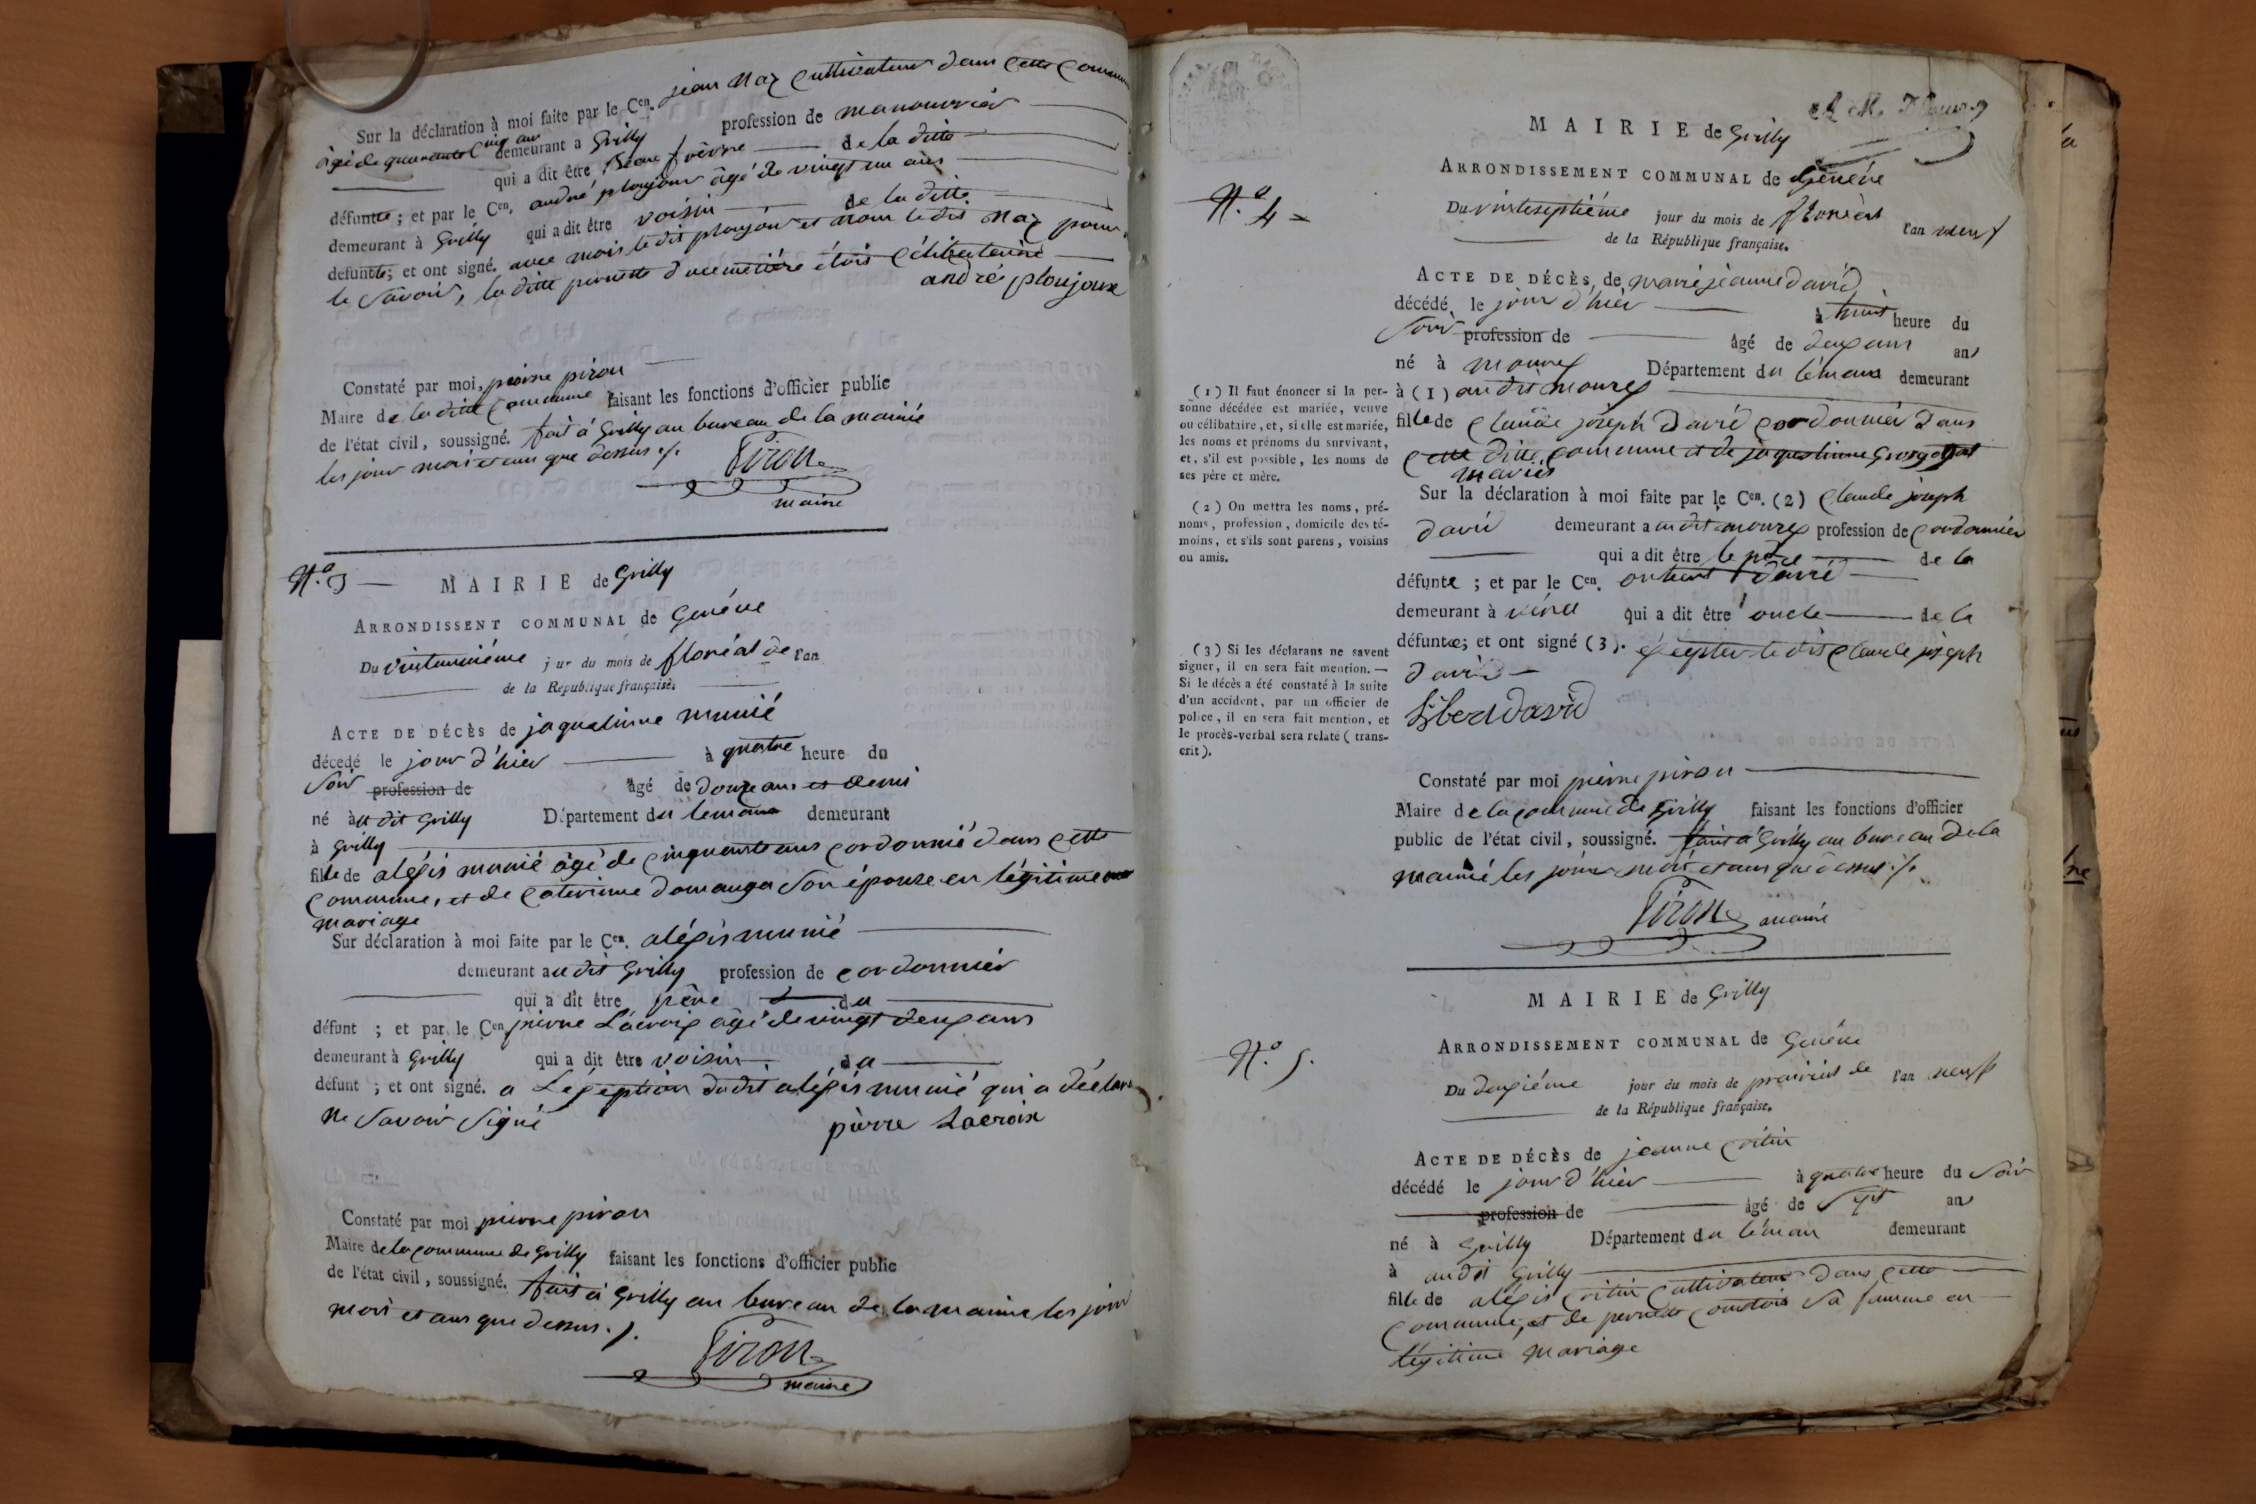 Sur la déclaration à moi faite par le Cen. jean Naz cultivateur dans cette
âgé de quarante cinq ans demeurant a Grilly profession de manouvrier
qui a dit être Beau frère de la ditte
défuntte ; et par le Cen. andré ploujoux âgé de vingt un ans
demeurant à Grilly qui a dit être voisin de la ditte
defuntte; et ont signé. avec mois le dit ploujoux et nom le dit Naz pour
le savoir, la ditte pernette étois célibataire
andré ploujoux
Constaté par moi, pierre piron
Maire de la ditte commune faisant les fonctions d'officier public
de l'état civil, soussigné. fait à Grilly au bureau de la mairie
les jour mois et an que dessus ./.
Piron
maire
N.o 3
MAIRIE de Grilly
ARRONDISSENT COMMUNAL de Genéve
Du vintunième jur du mois de floréal de l'an
de la République française.
ACTE DE DÉCÈS de jaquelinne munié
décedé le jour d'hier à quatre heure du
soir profession de âgé de douze ans et demi
né àu dit Grilly Département du leman demeurant
à Grilly
fille de aléxis munié âgé de cinquante ans cordonnié dans cette
commune, et de caterinne domanga son épouse en légitime
mariage
Sur déclaration à moi faite par le Cen. aléxis munié
demeurant audit Grilly profession de cordonnier
qui a dit être père du
défunt ; et par le Cen pierre Lacroix âgé de vingt deux ans
demeurant à Grilly qui a dit être voisin du
défunt ; et ont signé. a Léxception dudit aléxis munié qui a déclaré
ne savoir signé
pièrre Lacroix
Constaté par moi pierre piron
Maire de la commune de Grilly faisant les fonctions d'officier public
de l'état civil, soussigné. fait à Grilly au bureau de la mairie les jour
mois et ans que dessus ./.
Piron
maire
MAIRIE de Grilly
ARRONDISSEMENT COMMUNAL de Genéve
N.o 4
Du vinteseptiéme jour du mois de floréal l'an neuf
de la République française.
ACTE DE DÉCÈS, de marie jeanne david
décédé le jour d'hier à huit heure du
soir profession de âgé de deux ans an
né à mourex Département du léman demeurant
à (1) audit mourex
fille de Claude joseph David cordonnier dans
cette ditte commune et de jaquelinne
mariés
Sur la déclaration à moi faite par le Cen. (2) Claude joseph
david demeurant a audit mourex profession de cordonnier
qui a dit être le père de la
défunte ; et par le Cen. david
demeurant à qui a dit être oncle de la
défunte; et ont signé (3). éxcepter le dit Claude joseph
david
david
(1) Il faut énoncer si la per-
sonne décédée est mariée, veuve
ou célibataire, et, si elle est mariée,
les noms et prénoms du survivant,
et, s'il est possible, les noms de
ses père et mère.
(2) On mettra les noms, pré-
noms, profession, domicile des té-
moins, et s'ils sont parens, voisins
ou amis.
(3) Si les déclarans ne savent
signer, il en sera fait mention. —
Si le décès a été constaté à la suite
d'un accident, par un officier de
police, il en sera fait mention, et
le procès-verbal sera relaté (trans-
crit).
Constaté par moi pierre piron
Maire de la commune de Grilly faisant les fonctions d'officier
public de l'état civil, soussigné. fait à Grilly au bureau de la
mairié les jour mois et ans que dessus ./.
Piron maire
MAIRIE de Grilly
ARRONDISSEMENT COMMUNAL de Genéve
N.o 5.
Du deuxiéme jour du mois de prairial de l'an neuf
de la République française.
ACTE DE DÉCÈS de jeanne critin
décédé le jour d'hier à quatre heure du soir
profession de âgé de sept an
né à Grilly Département du léman demeurant
à audit Grilly
fille de aléxis critin cultivateur dans cette
commune, et de pernette courtois sa femme en
légitime mariage